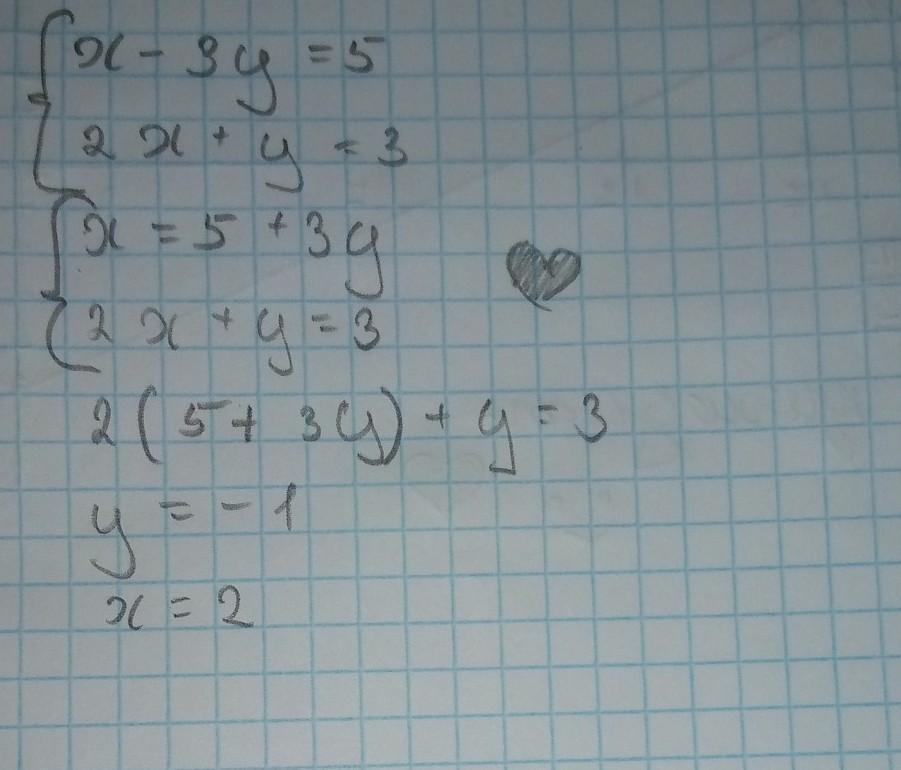 x - 3y = 5
2x + y = 3
x = 5 + 3y
2x + y = 3
2(5 + 3y) + y = 3
y = -1
x = 2